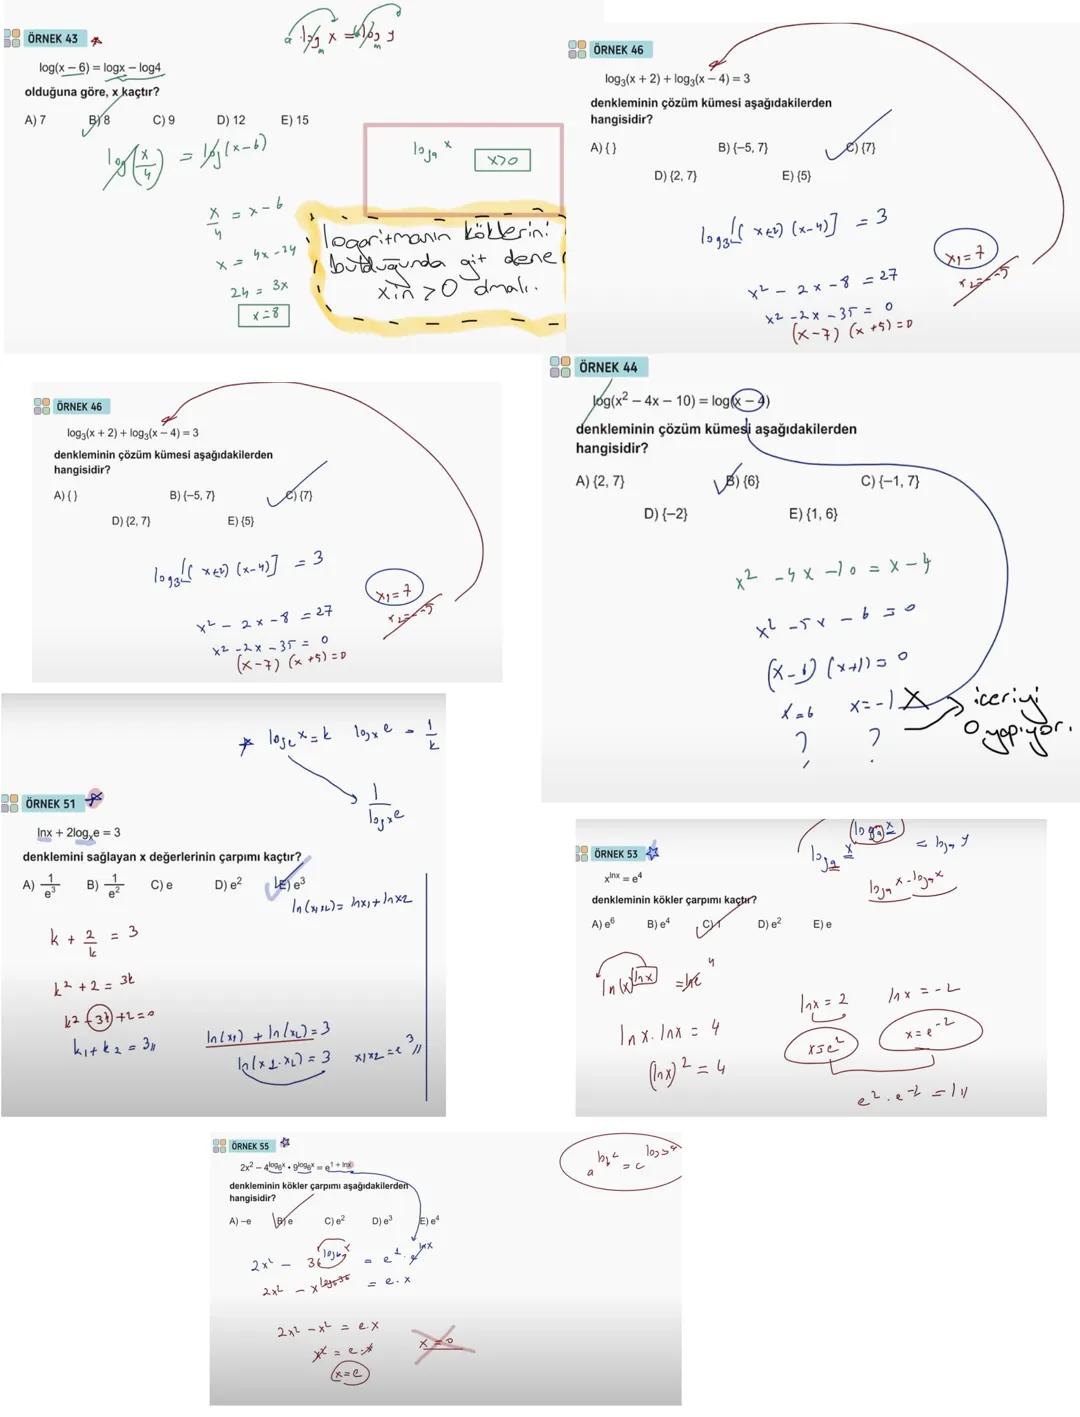 ÖRNEK 43
log(x – 6) = logx – log4
olduğuna göre, x kaçtır?
A) 7 B) 8 C) 9 D) 12 E) 15
log(x/4) = log(x-6)
x/4 = x-6
x = 4x-24
24 = 3x
x=8
a log_m x = log_m y
log_a x
x>0
logaritmanın köklerini
bulduğunda git dene
x in >0 olmalı.
ÖRNEK 46
log₃(x + 2) + log₃(x – 4) = 3
denkleminin çözüm kümesi aşağıdakilerden
hangisidir?
A) { } B) {–5, 7} C) {7}
D) {2, 7} E) {5}
log₃[(x+2)(x-4)] = 3
x² - 2x - 8 = 27
x² - 2x - 35 = 0
(x-7) (x+5) = 0
x₁ = 7
x₂ = -5
ÖRNEK 46
log₃(x + 2) + log₃(x – 4) = 3
denkleminin çözüm kümesi aşağıdakilerden
hangisidir?
A) { } B) {–5, 7} C) {7}
D) {2, 7} E) {5}
log₃[(x+2)(x-4)] = 3
x² - 2x - 8 = 27
x² - 2x - 35 = 0
(x-7) (x+5) = 0
x₁ = 7
x₂ = -5
ÖRNEK 44
log(x² – 4x – 10) = log(x – 4)
denkleminin çözüm kümesi aşağıdakilerden
hangisidir?
A) {2, 7} B) {6} C) {–1, 7}
D) {–2} E) {1, 6}
x² - 4x - 10 = x - 4
x² - 5x - 6 = 0
(x-6) (x+1) = 0
x=6 x=-1 X
? ?
içeriyi
0 yapıyor.
log_e x = k log_x e = 1/k
1/log_x e
ÖRNEK 51
lnx + 2logₓe = 3
denklemini sağlayan x değerlerinin çarpımı kaçtır?
A) 1/e³ B) 1/e² C) e D) e² E) e³
ln(x₁x₂) = lnx₁ + lnx₂
k + 2/k = 3
k² + 2 = 3k
k² - 3k + 2 = 0
k₁ + k₂ = 3//
ln(x₁) + ln(x₂) = 3
ln(x₁.x₂) = 3 x₁x₂ = e³//
ÖRNEK 53
x^lnx = e⁴
denkleminin kökler çarpımı kaçtır?
A) e⁶ B) e⁴ C) 1 D) e² E) e
log_a x - log_a x
ln(x)^lnx = lne⁴
lnx . lnx = 4
(lnx)² = 4
lnx = 2 lnx = -2
x = e² x = e⁻²
e² . e⁻² = 1//
ÖRNEK 55
2x² – 4^log₆x • 9^log₆x = e^1 + lnx
denkleminin kökler çarpımı aşağıdakilerden
hangisidir?
A) –e B) e C) e² D) e³ E) e⁴
2x² - 36^log₆x = e¹ . e^lnx
2x² - x^log₆36 = e . x
2x² - x² = e.x
x² = e.x
x=e
x=0